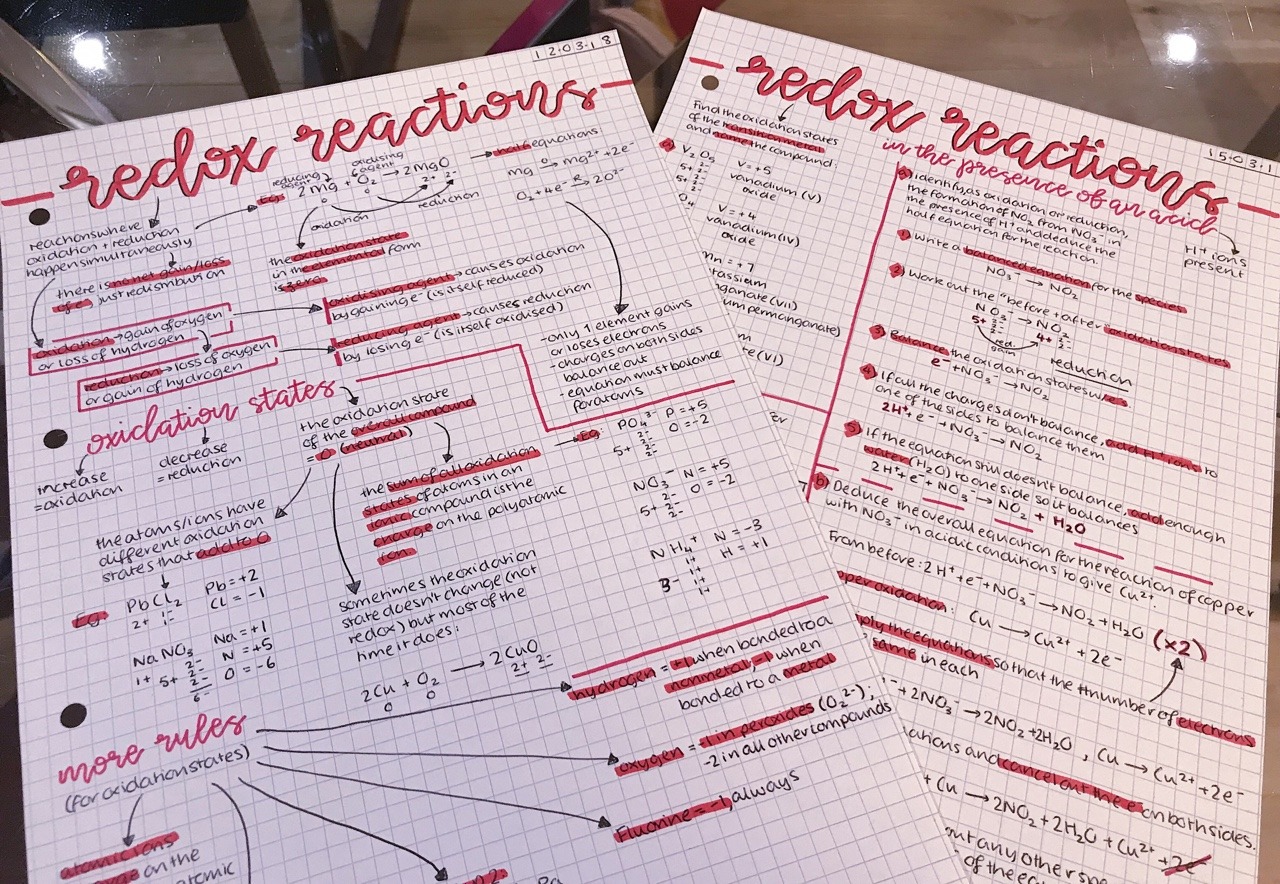 12.03.18
redox reactions
reducing agent
oxidising agent
Eg: 2Mg + O₂ → 2MgO
0 0 2+ 2-
oxidation
reduction
half equations
Mg → Mg²⁺ + 2e⁻
O₂ + 4e⁻ → 2O²⁻
reactions where
oxidation + reduction
happen simultaneously
there is no net gain/loss
of e⁻, just redistribution
the oxidation state
in the elemental form
is zero
oxidation → gain of oxygen
or loss of hydrogen
reduction → loss of oxygen
or gain of hydrogen
oxidising agent → causes oxidation
by gaining e⁻ (is itself reduced)
reducing agent → causes reduction
by losing e⁻ (is itself oxidised)
-only 1 element gains
or loses electrons
-charges on both sides
balance out
-equation must balance
for atoms
oxidation states
increase
=oxidation
decrease
=reduction
the oxidation state
of the overall compound
= 0 (neutral)
the atoms/ions have
different oxidation
states that add to 0
Eg: PbCl₂ Pb = +2
2+ 1- 1- Cl = -1
NaNO₃ Na = +1
1+ 5+ 2- 2- 2- N = +5
6- O = -6
the sum of all oxidation
states of atoms in an
ionic compound is the
charge on the polyatomic
ion
sometimes the oxidation
state doesn't change (not
redox) but most of the
time it does:
2Cu + O₂ → 2CuO
0 0 2+ 2-
Eg: PO₄³⁻ P = +5
5+ 2- 2- 2- 2- O = -2
NO₃⁻ N = +5
5+ 2- 2- 2- O = -2
NH₄⁺ N = -3
3- 1+ 1+ 1+ 1+ H = +1
more rules
(for oxidation states)
hydrogen = +1 when bonded to a
nonmetal, -1 when
bonded to a metal
oxygen = -1 in peroxides (O₂²⁻);
-2 in all other compounds
Fluorine = -1, always
atomic ions
on the
atomic
15.03.1
redox reactions
in the presence of an acid
H⁺ ions
present
Find the oxidation states
of the transition metal
and name the compound:
V₂O₅ V = +5
5+ 2-
5+ 2-
vanadium (V)
oxide
V = +4
vanadium (IV)
oxide
Mn = +7
tassium
ganate (VII)
um permanganate)
te (VI)
identify, as oxidation or reduction,
the formation of NO₂ from NO₃⁻ in
the presence of H⁺ and deduce the
half equation for the reaction
1) Write a balanced equation for the species
NO₃⁻ → NO₂
2) Work out the "before + after" oxidation states
NO₃⁻ → NO₂
5+ 2- 2- 2- 4+ 2- 2-
red. gain
reduction
3) Balance the oxidation states w/ e⁻s
e⁻ + NO₃⁻ → NO₂
4) If cul the charges don't balance, add H⁺ ions to
one of the sides to balance them
2H⁺ + e⁻ + NO₃⁻ → NO₂
5) If the equation still doesn't balance, add enough
water (H₂O) to one side so it balances
2H⁺ + e⁻ + NO₃⁻ → NO₂ + H₂O
6) Deduce the overall equation for the reaction of copper
with NO₃⁻ in acidic conditions to give Cu²⁺.
From before: 2H⁺ + e⁻ + NO₃⁻ → NO₂ + H₂O (x2)
pper oxidation: Cu → Cu²⁺ + 2e⁻
ply the equations so that the number of electrons
same in each
⁻ + 2NO₃⁻ → 2NO₂ + 2H₂O , Cu → Cu²⁺ + 2e⁻
ations and cancel out the e⁻ on both sides.
+ Cu → 2NO₂ + 2H₂O + Cu²⁺ + 2e⁻
out any other spe